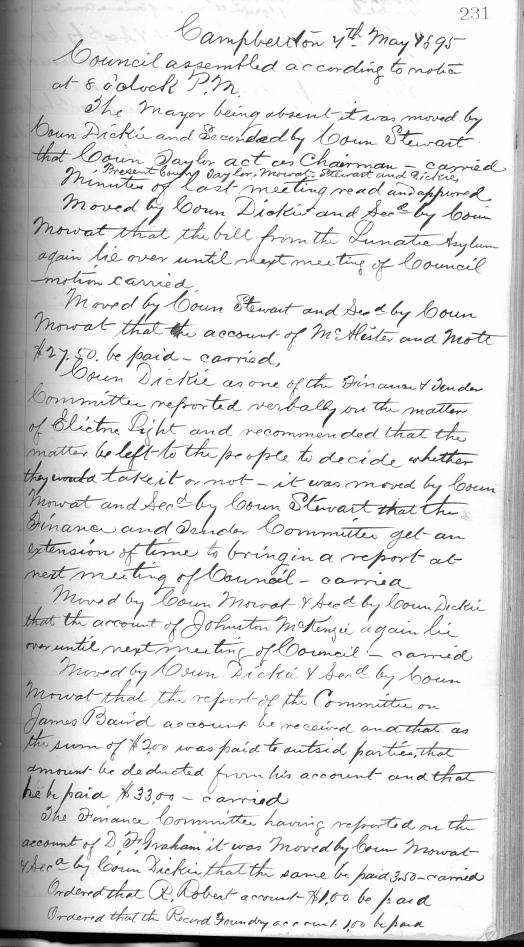 231
Campbellton 7th May 1895
Council assembled according to notice
at 8 o'clock P.M.
The Mayor being absent it was moved by
Coun Dickie and Seconded by Coun Stewart
that Coun Taylor act as Chairman - carried
Present Couns Taylor, Mowat, Stewart and Dickie
Minutes of last meeting read and approved
Moved by Coun Dickie and Secd by Coun
Mowat that the bill from the Lunatic Asylum
again lie over until next meeting of Council
motion carried
Moved by Coun Stewart and Secd by Coun
Mowat that the account of McAlister and Mott
$27.50. be paid - carried,
Coun Dickie as one of the Finance & Tender
Committee reported verbally on the matter
of Electric Light and recommended that the
matter be left to the people to decide whether
they would take it or not - it was moved by Coun
Mowat and Secd by Coun Stewart that the
Finance and Tender Committee get an
extension of time to bring in a report at
next meeting of Council - carried
Moved by Coun Mowat & Secd by Coun Dickie
that the account of Johnston McKenzie again lie
over until next meeting of Council - carried
Moved by Coun Dickie & Secd by Coun
Mowat that the report of the Committee on
James Baird account be received and that as
the sum of $2.00 was paid to outsid parties, that
amount be deducted from his account and that
he be paid $33.00 - carried
The Finance Committee having reported on the
account of D. F. Graham it was Moved by Coun Mowat
& Secd by Coun Dickie that the same be paid 3.50 - carried
Ordered that R. Robert account $1.00 be paid
Ordered that the Record Foundry account 1.00 be paid